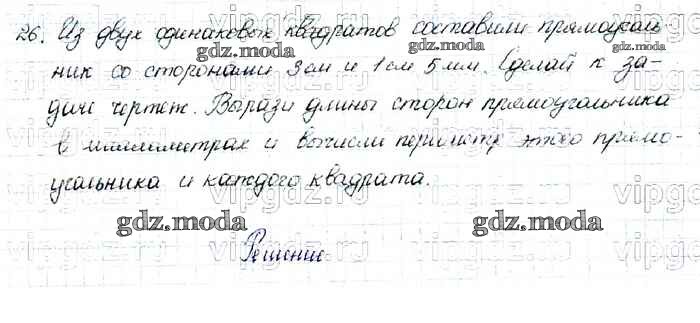 26. Из двух одинаковых квадратов составили прямоуголь-
ник со сторонами 3см и 1см 5мм. Сделай к за-
даче чертеж. Вырази длины сторон прямоугольника
в миллиметрах и вычисли периметр этого прямо-
угольника и каждого квадрата.
gdz.moda
gdz.moda
gdz.moda
gdz.moda
gdz.moda
Решение
gdz.moda